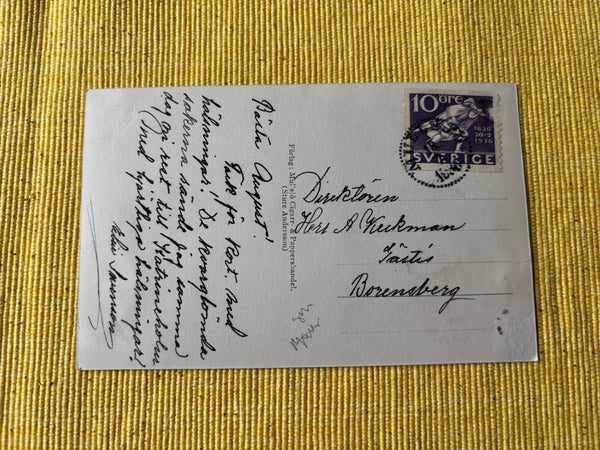 Bästa August!
Tack för kort med
hälsningar! De kvarglömda
sakerna sände jag samma
dag en rest till Katrineholm
Med hjärtliga hälsningar!
Förlag: Mullsjö Cigarr- & Pappershandel.
(Sture Andersson)
10 ÖRE
1636
20-2
1936
SVERIGE
Direktören
Herr A Keekman
Tästis
Borensberg